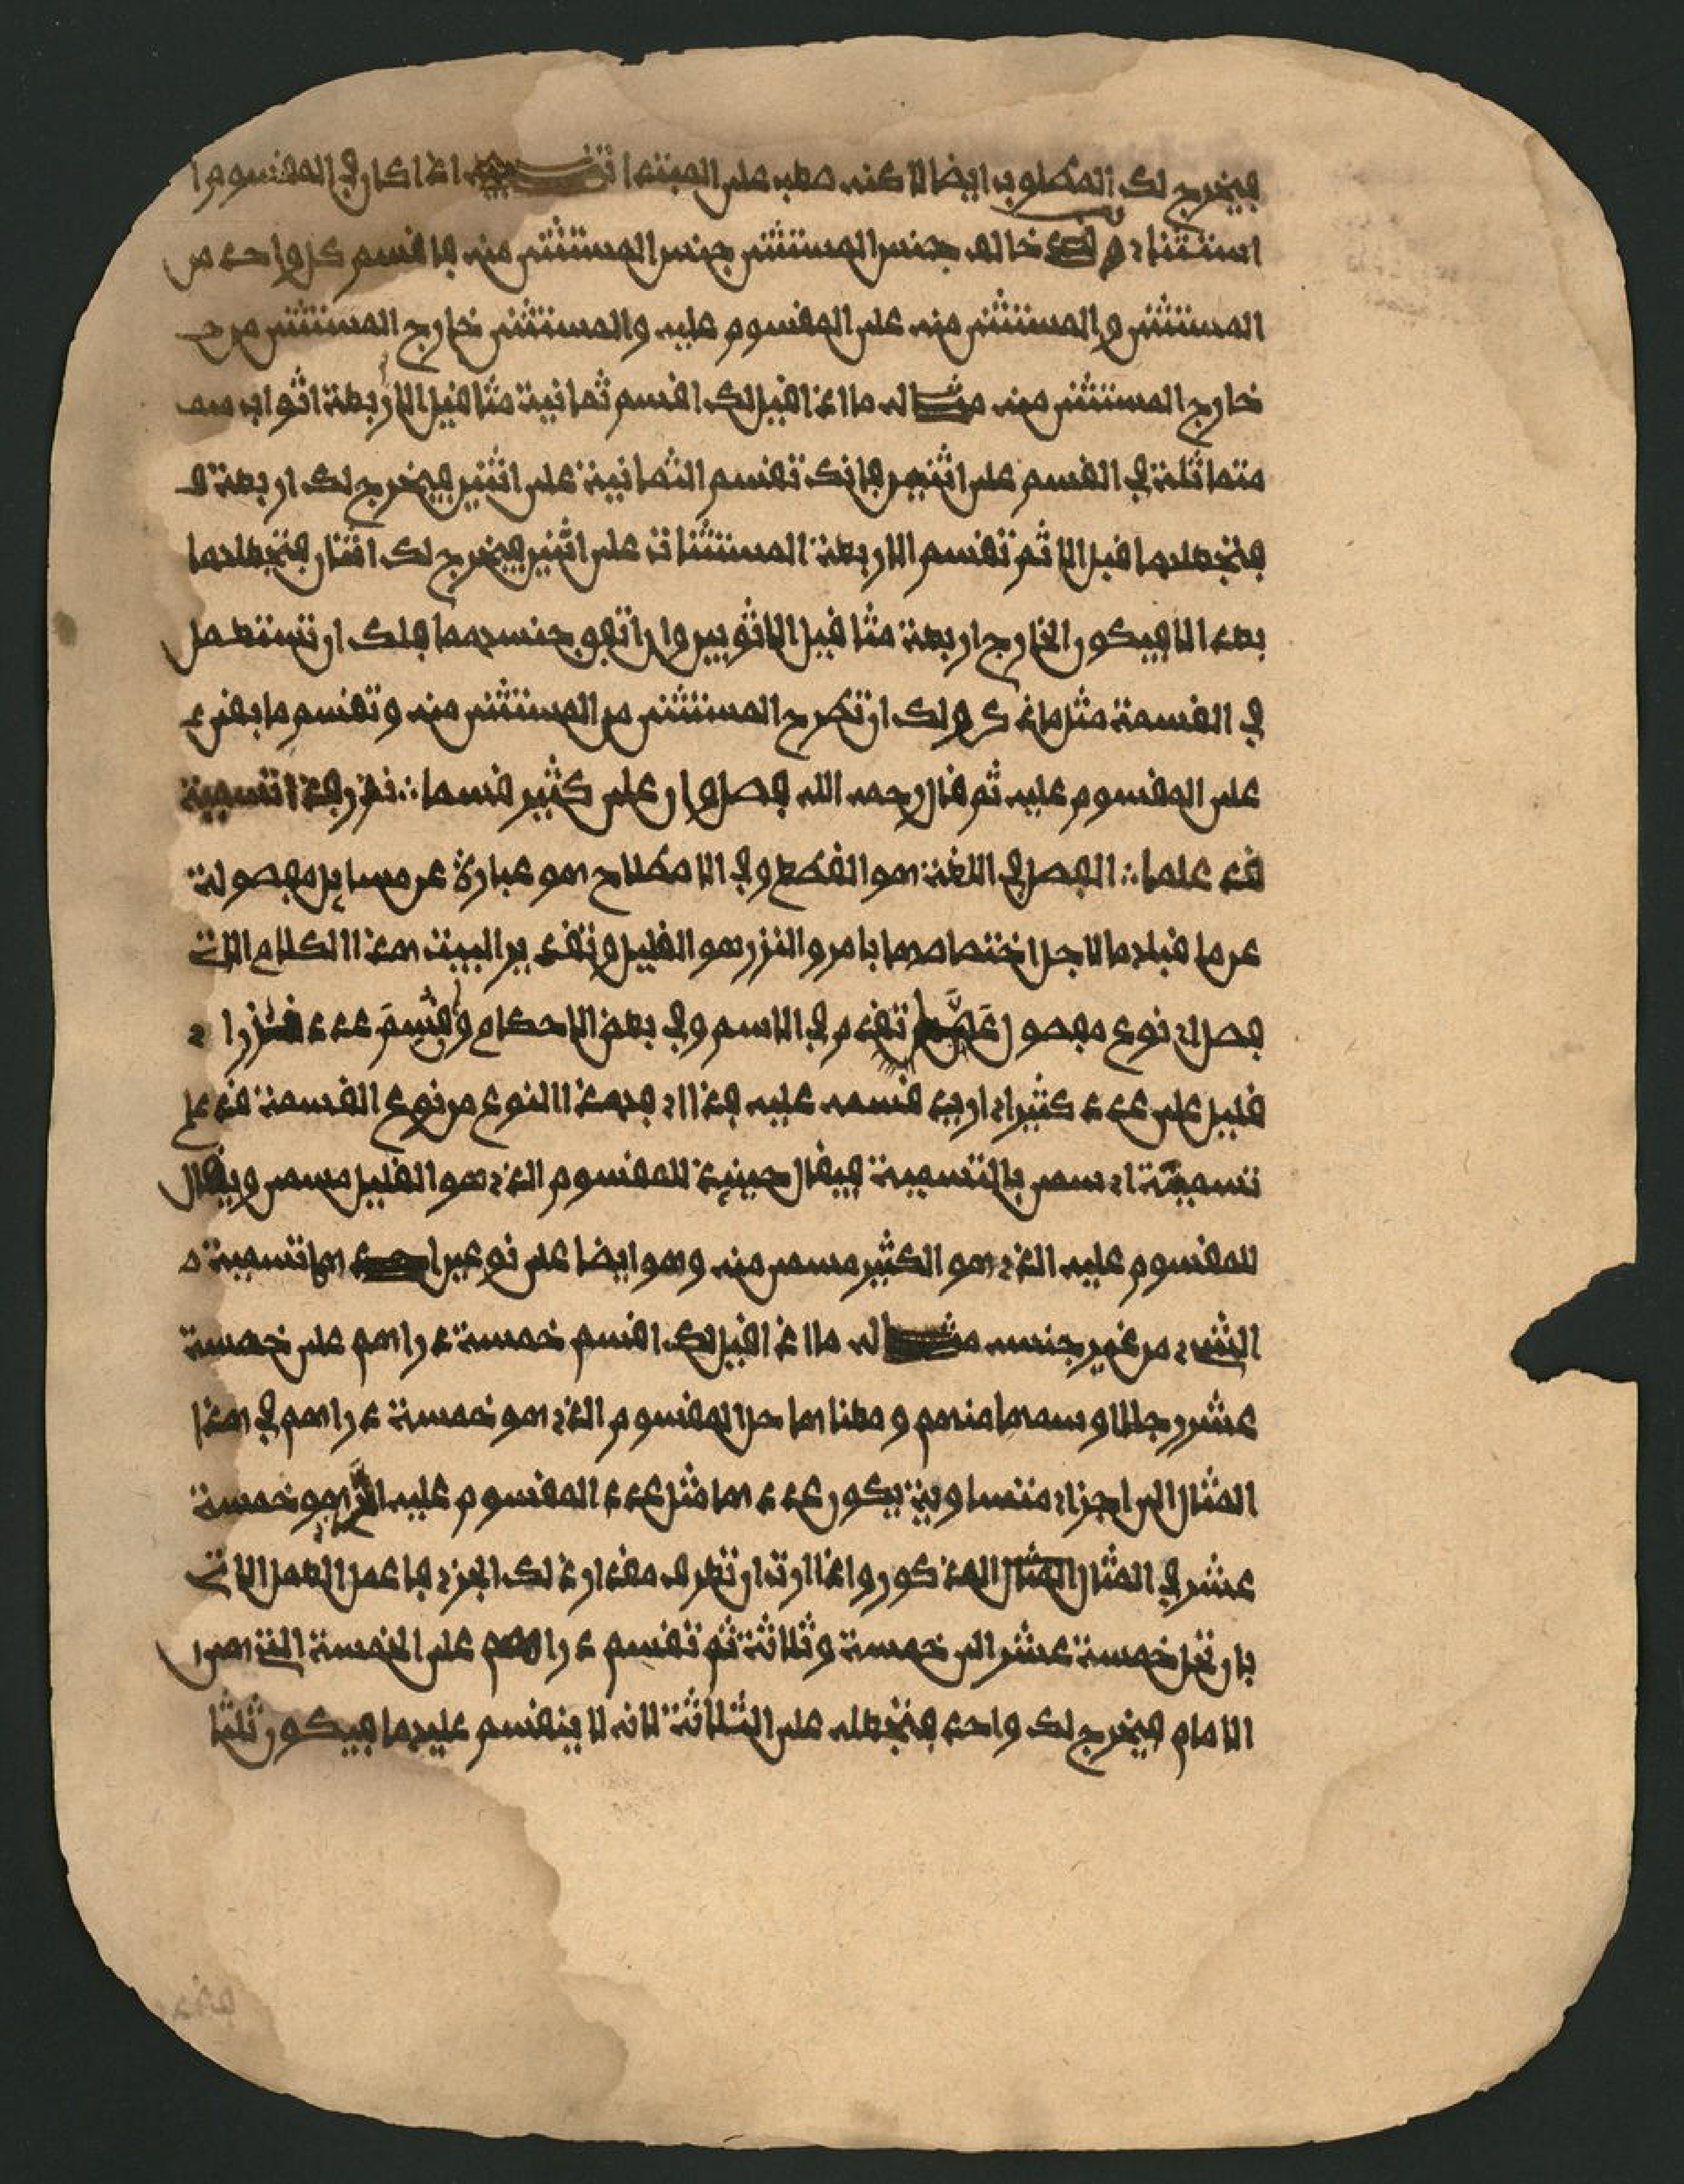 فيخرج لك المطلوب ايضا لاكنه صعب على المبتدا تنبيه اذا كان في المقسوم ا
استثناء وقد خالف جنس المستثنى جنس المستثنى منه فاقسم كل واحد من
المستثنى والمستثنى منه على المقسوم عليه والمستثنى خارج المستثنى من خ
خارج المستثنى منه مثاله ما اذا قيل لك اقسم ثمانية مثاقيل الا اربعة اثواب
متماثلة في القسم على اثنين فانك تقسم الثمانية على اثنين فيخرج لك اربعة
فتجعلهما قبل الا ثم تقسم الاربعة المستثنات على اثنين فيخرج لك اثنان فتجعلهما
بعد الا فيكون الخارج اربعة مثاقيل الا ثوبين وان اتفق جنسهما فلك ان تستعمل
في القسمة مثل ما ذكر ولك ان تطرح المستثنى من المستثنى منه وتقسم ما بقي ع
على المقسوم عليه ثم قال رحمه الله فصل وان على كثير قسما ∴ نزر فذا تسمية
قد علما ∴ الفصل في اللغة هو القطع وفي الاصطلاح هو عبارة عن مسايل مفصولة
عن ما قبلها لاجل اختصاصها بامر والنزر هو القليل وتقدير البيت هذا الكلام الات
فصل اي نوع مفصول عما تقدم في الاسم وفي بعض الاحكام وقسم عدد نزر ا ي
قليل على عدد كثير اي اريد قسمه عليه فذا اي فهذا النوع من نوع القسمة قد علم
تسمية اي سمى بالتسمية فيقال حينيذ للمقسوم الذي هو القليل مسمى ويقال
للمقسوم عليه الذي هو الكثير مسمى منه وهو ايضا على نوعين احدهما تسمية
الشيء من غير جنسه مثاله ما اذا قيل لك اقسم خمسة دراهم على خمسة
عشر رجلا او سمها منهم ومعناها حل المقسوم الذي هو خمسة دراهم في هذا
المثال الى اجزاء متساوية يكون عددها مثل عدد المقسوم عليه الذي هو خمسة
عشر في المثال المثال المذكور واذا اردت ان تعرف مقدار ذلك الجزء فاعمل العمل الات
بان تحل خمسة عشر الى خمسة وثلاثة ثم تقسم دراهم على الخمسة التي هي
الامام فيخرج لك واحد فتجعله على الثلاثة لانه لا ينقسم عليها فيكون ثلثا